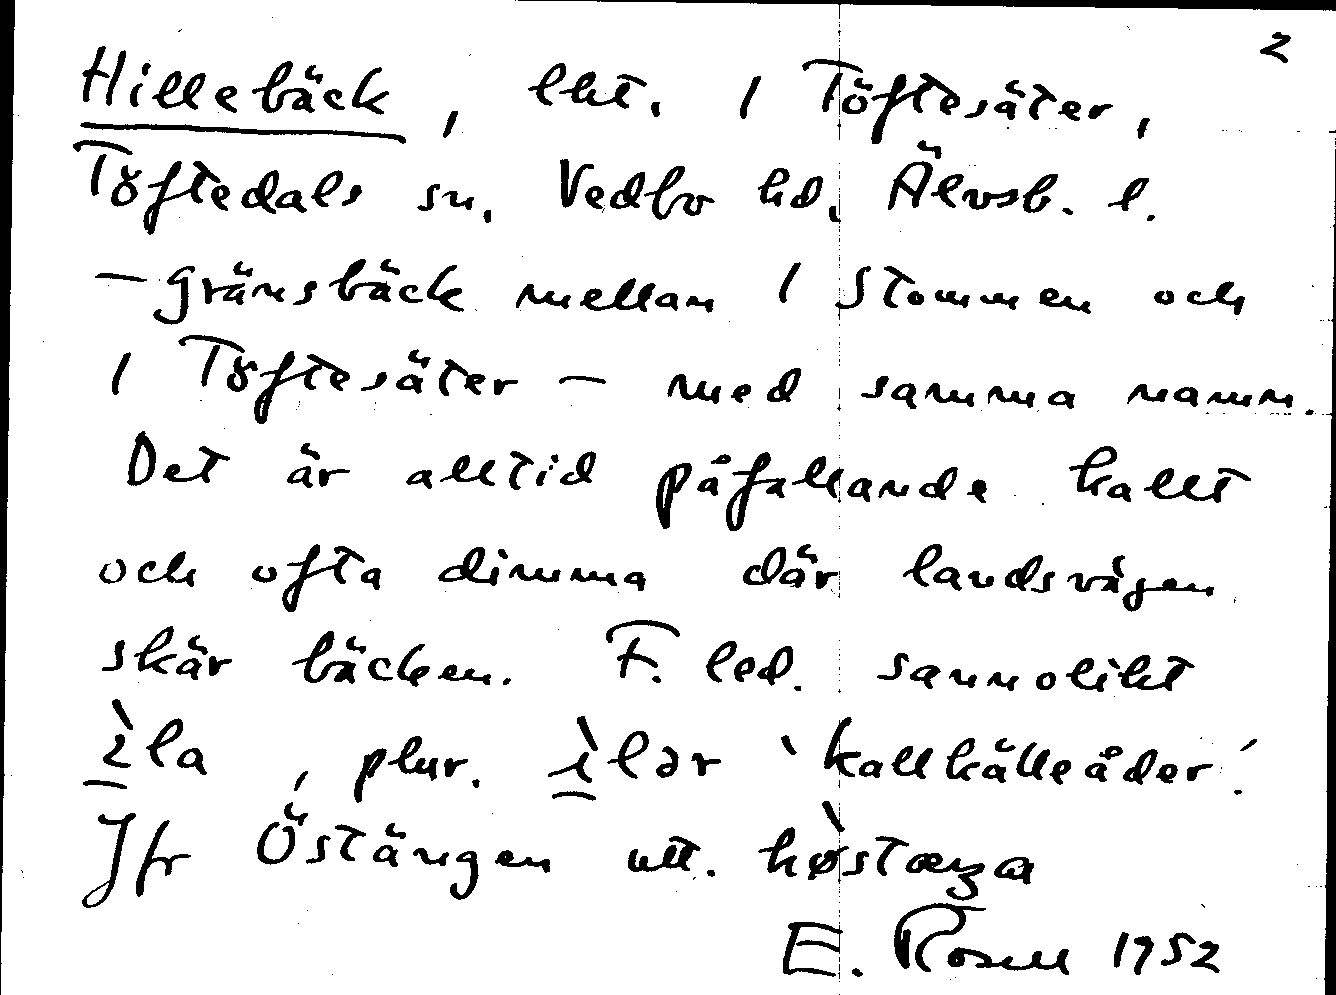 2
Hillebäck, lht. 1 Töftesäter,
Töftedals sn. Vedbo hd. Älvsb. l.
- gränsbäck mellan 1 Stommen och
1 Töftesäter - med samma namn.
Det är alltid påfallande kallt
och ofta dimma där landsvägen
skär bäcken. F. led. sannolikt
ìla, plur. ìlər 'kallkälleåder'.
Jfr Östängen utt. hø̀stæŋa
E. Rosell 1952